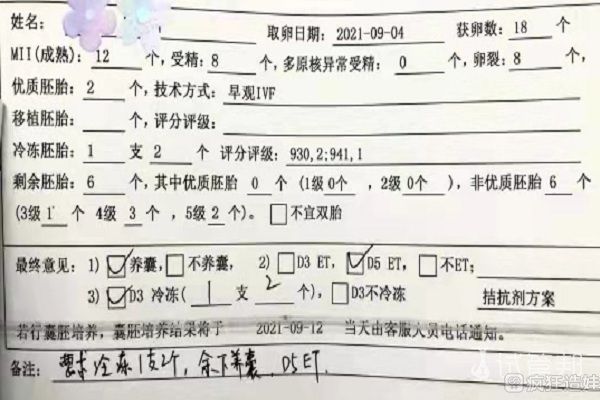 姓名: 取卵日期: 2021-09-04 获卵数: 18 个
MII(成熟): 12 个, 受精: 8 个, 多原核异常受精: 0 个, 卵裂: 8 个,
优质胚胎: 2 个, 技术方式: 早观IVF
移植胚胎: 个, 评分评级:
冷冻胚胎: 1 支 2 个 评分评级: 930,2;941,1
剩余胚胎: 6 个, 其中优质胚胎 0 个 (1级0个 , 2级0个), 非优质胚胎 6 个
(3级1 个 4级 3 个 , 5级2 个)。 □不宜双胎
最终意见: 1) ☑养囊, □不养囊, 2) □D3 ET, ☑D5 ET, □不ET;
3) ☑D3 冷冻( 1 支 2 个), □D3不冷冻 拮抗剂方案
若行囊胚培养, 囊胚培养结果将于 2021-09-12 当天由客服人员电话通知。
备注: 要求冷冻1支2个, 余下养囊. D5ET.
试管邦
疯狂造娃